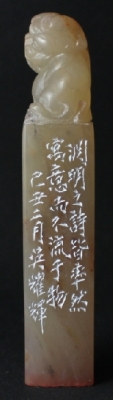 渊明之詩皆率然
寓意而不流于物
己丑二月吴耀輝